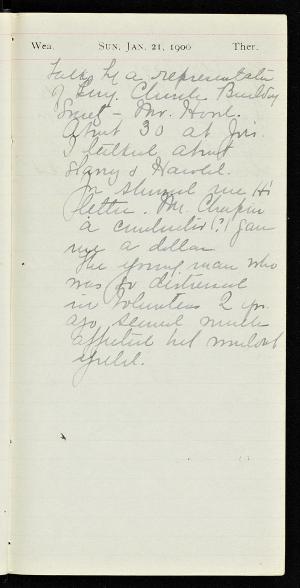 Wea. SUN. JAN. 21, 1906 Ther.
Talk by a representative
of Cong. Church Building
Society - Mr. Hood.
About 30 at Jris.
I talked about
Harry & Harold.
showed me H's
letter. Mr. Chapin
a conductor (?) gave
me a dollar
The young man who
was so distressed
in Volunteers 2 yrs.
ago seemed much
affected but wouldn't
yield.